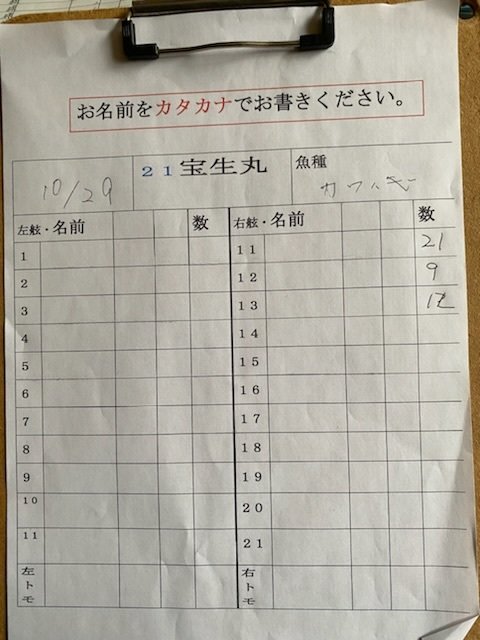 お名前をカタカナでお書きください。
10/29 21宝生丸 魚種 カワハギ
左舷・名前 数 右舷・名前 数
1 11 21
2 12 9
3 13
4 14
5 15
6 16
7 17
8 18
9 19
10 20
11 21
左トモ 右トモ